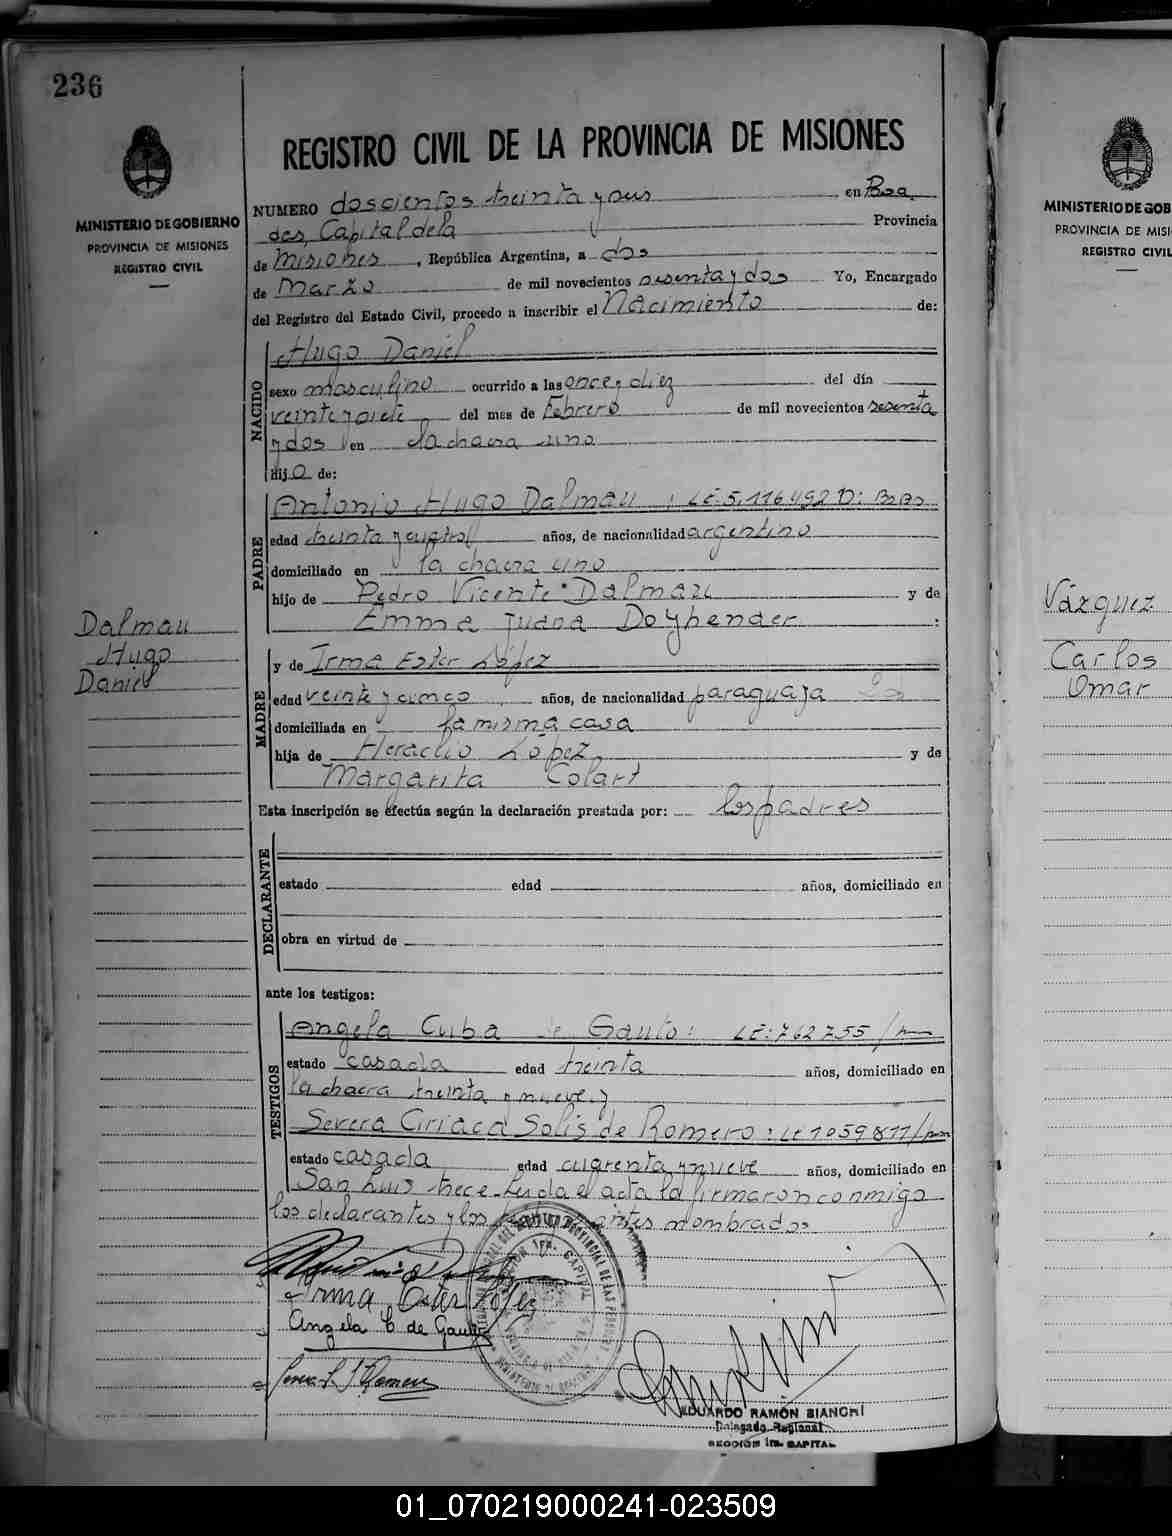 236
MINISTERIO DE GOBIERNO
PROVINCIA DE MISIONES
REGISTRO CIVIL
REGISTRO CIVIL DE LA PROVINCIA DE MISIONES
NUMERO doscientos treinta y seis en Posa
das, Capital de la Provincia
de Misiones, República Argentina, a dos
de Marzo de mil novecientos sesenta y dos Yo, Encargado
del Registro del Estado Civil, procedo a inscribir el Nacimiento de:
NACIDO
Hugo Daniel
sexo masculino ocurrido a las once y diez del día
veinte y siete del mes de Febrero de mil novecientos sesenta
y dos en la chacra uno
hijo de:
PADRE
Antonio Hugo Dalmau : LE. 5.116492 D:
edad treinta y cuatro años, de nacionalidad argentino
domiciliado en la chacra uno
hijo de Pedro Vicente Dalmau y de
Emma Juana Doyhender :
MADRE
y de Irma Ester López
edad veinte y cinco años, de nacionalidad paraguaya
domiciliada en la misma casa
hija de Heraclio López y de
Margarita Colart
Esta inscripción se efectúa según la declaración prestada por: los padres
DECLARANTE
estado edad años, domiciliado en
obra en virtud de
ante los testigos:
TESTIGOS
Angela Cuba de Gauto: LE: 762755/
estado casada edad treinta años, domiciliado en
la chacra treinta y nueve y
Severa Ciriaca Solis de Romero: LE 1059811/
estado casada edad cuarenta y nueve años, domiciliado en
San Luis trece. Leida el acta la firmaron conmigo
los declarantes y los nombrados
Irma Ester López
Angela C de Gauto
EDUARDO RAMÓN BIANCHI
Delegado Regional
SECCION 1ra. CAPITAL
Dalmau
Hugo
Daniel
MINISTERIO DE GOB
PROVINCIA DE MISI
REGISTRO CIVIL
Vázquez
Carlos
Omar
01_070219000241-023509